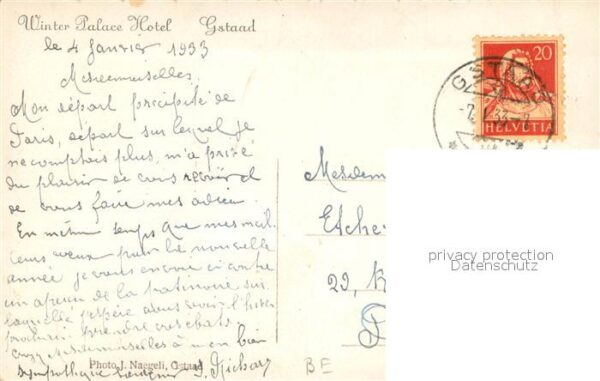 Winter Palace Hotel Gstaad
le 4 Janvier 1933
Mesdemoiselles,
Mon départ précipité de
Paris, départ sur lequel je
ne comptais plus, m'a privé
du plaisir de vous revoir et
de vous faire mes adieux.
En même temps que mes meil.
leurs voeux pour la nouvelle
année je vous envoie ci contre
un aperçu de la patinoire sur
laquelle j'espère vous voir l'hiver
prochain prendre vos ébats.
Croyez Mesdemoiselles à mon bien
sympathique
Photo J. Naegeli, Gstaad
20
HELVETIA
GSTAAD
Mesdem
29,
privacy protection
Datenschutz
BE